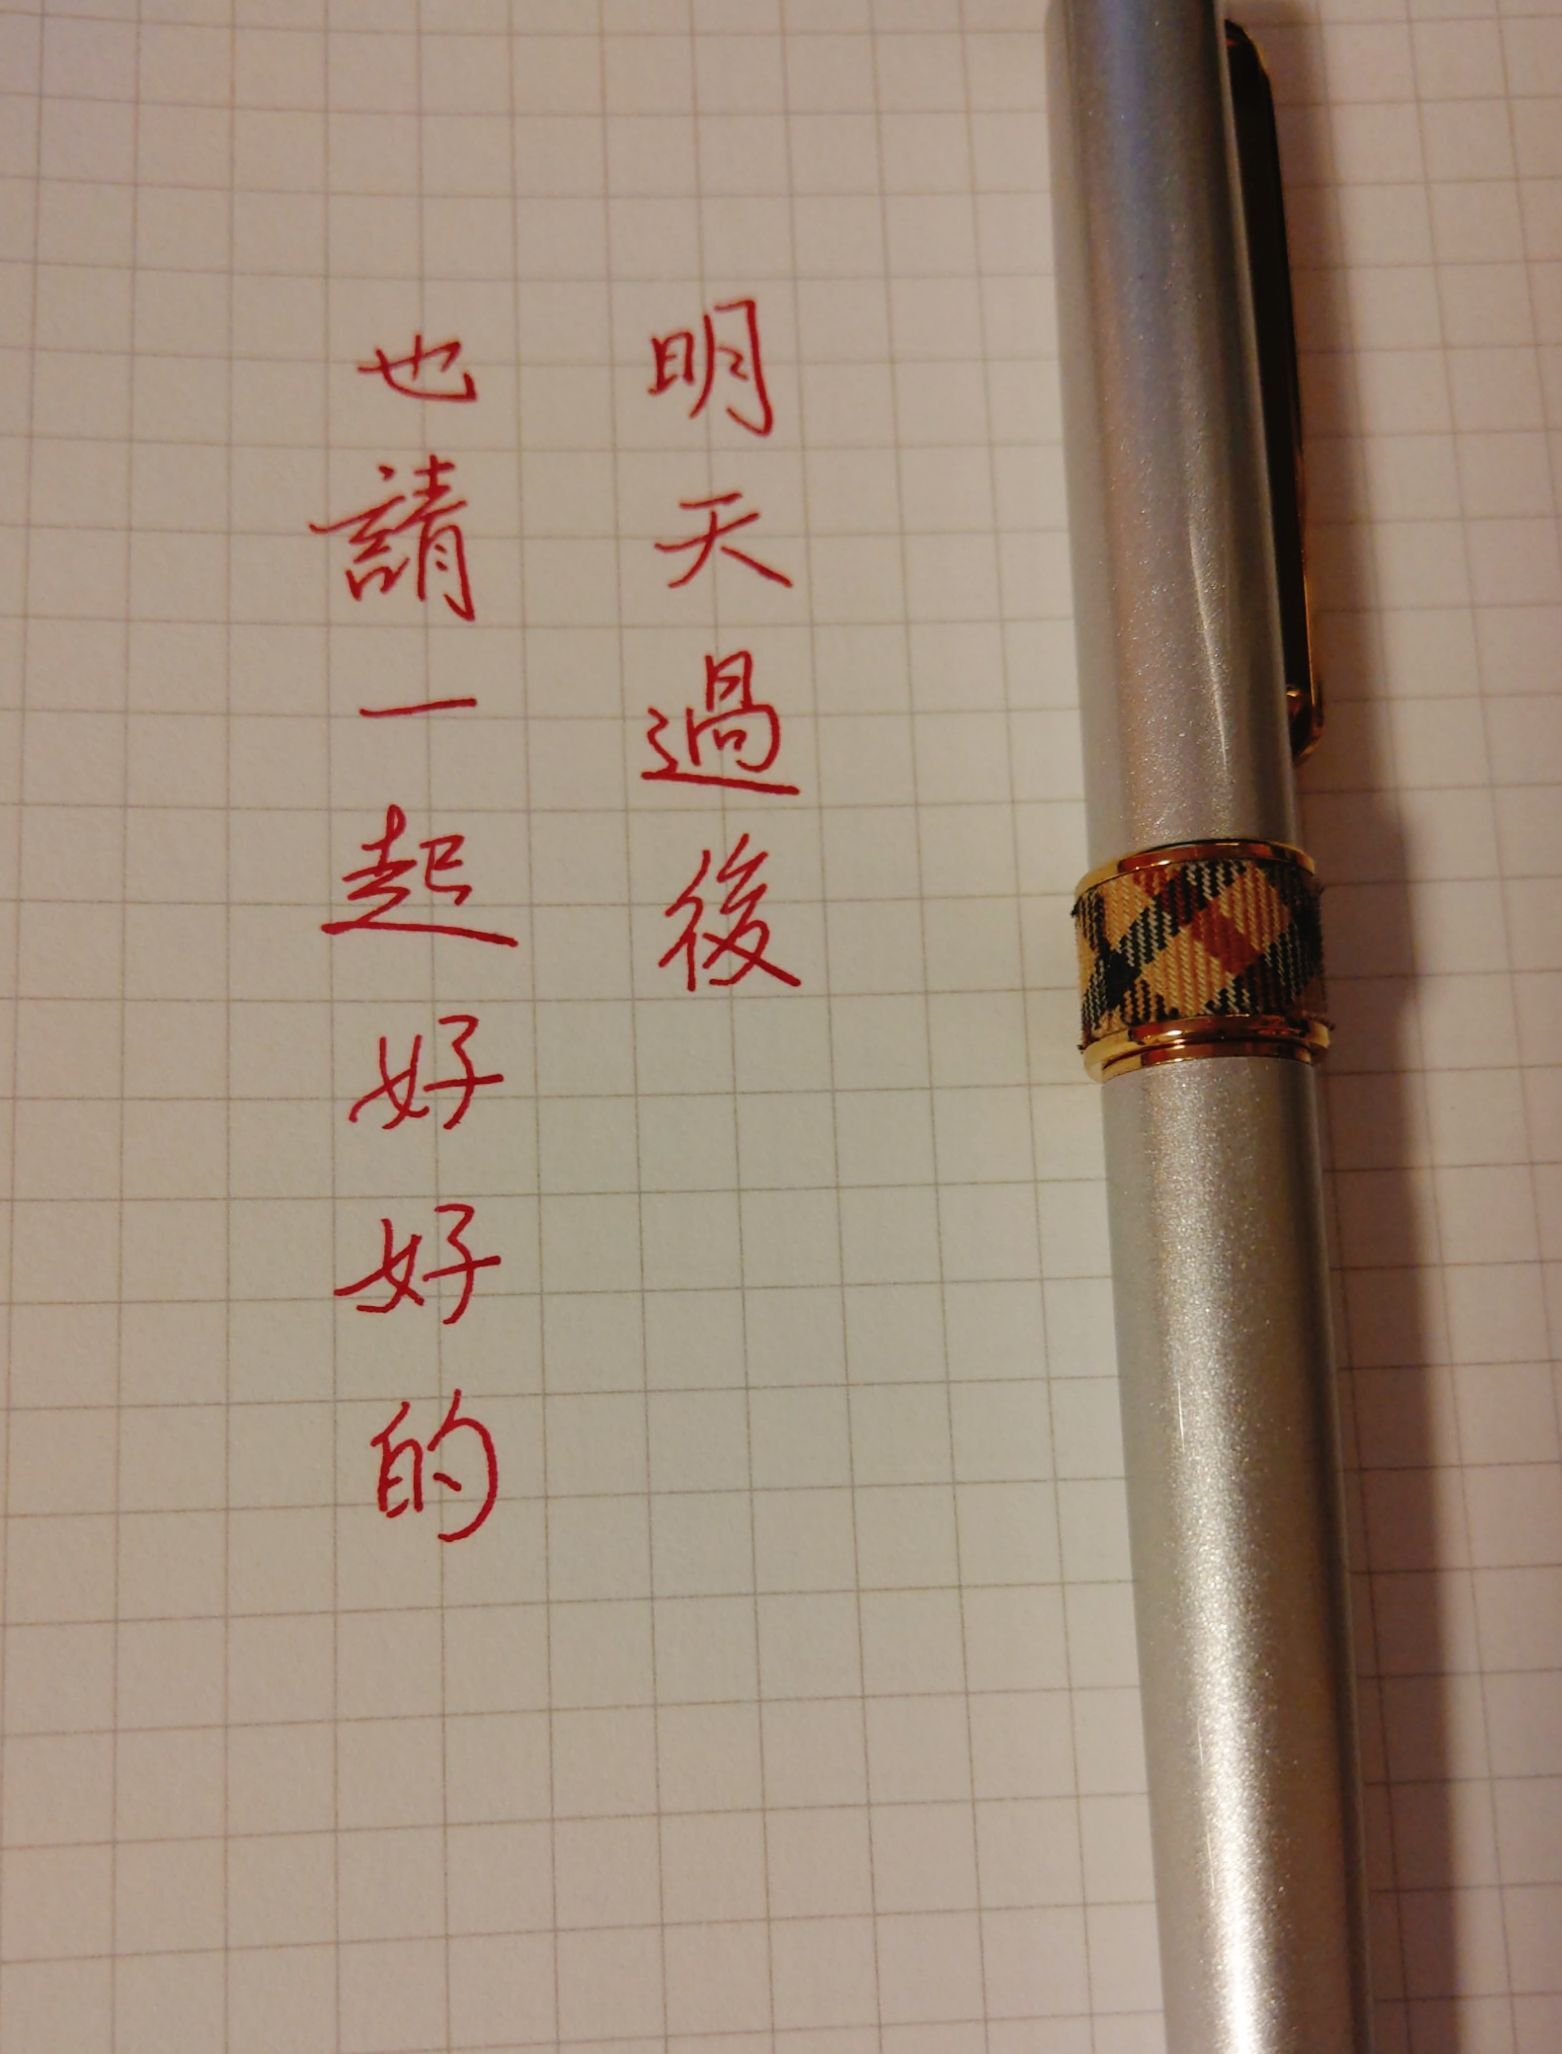 明天過後
也請一起好好的